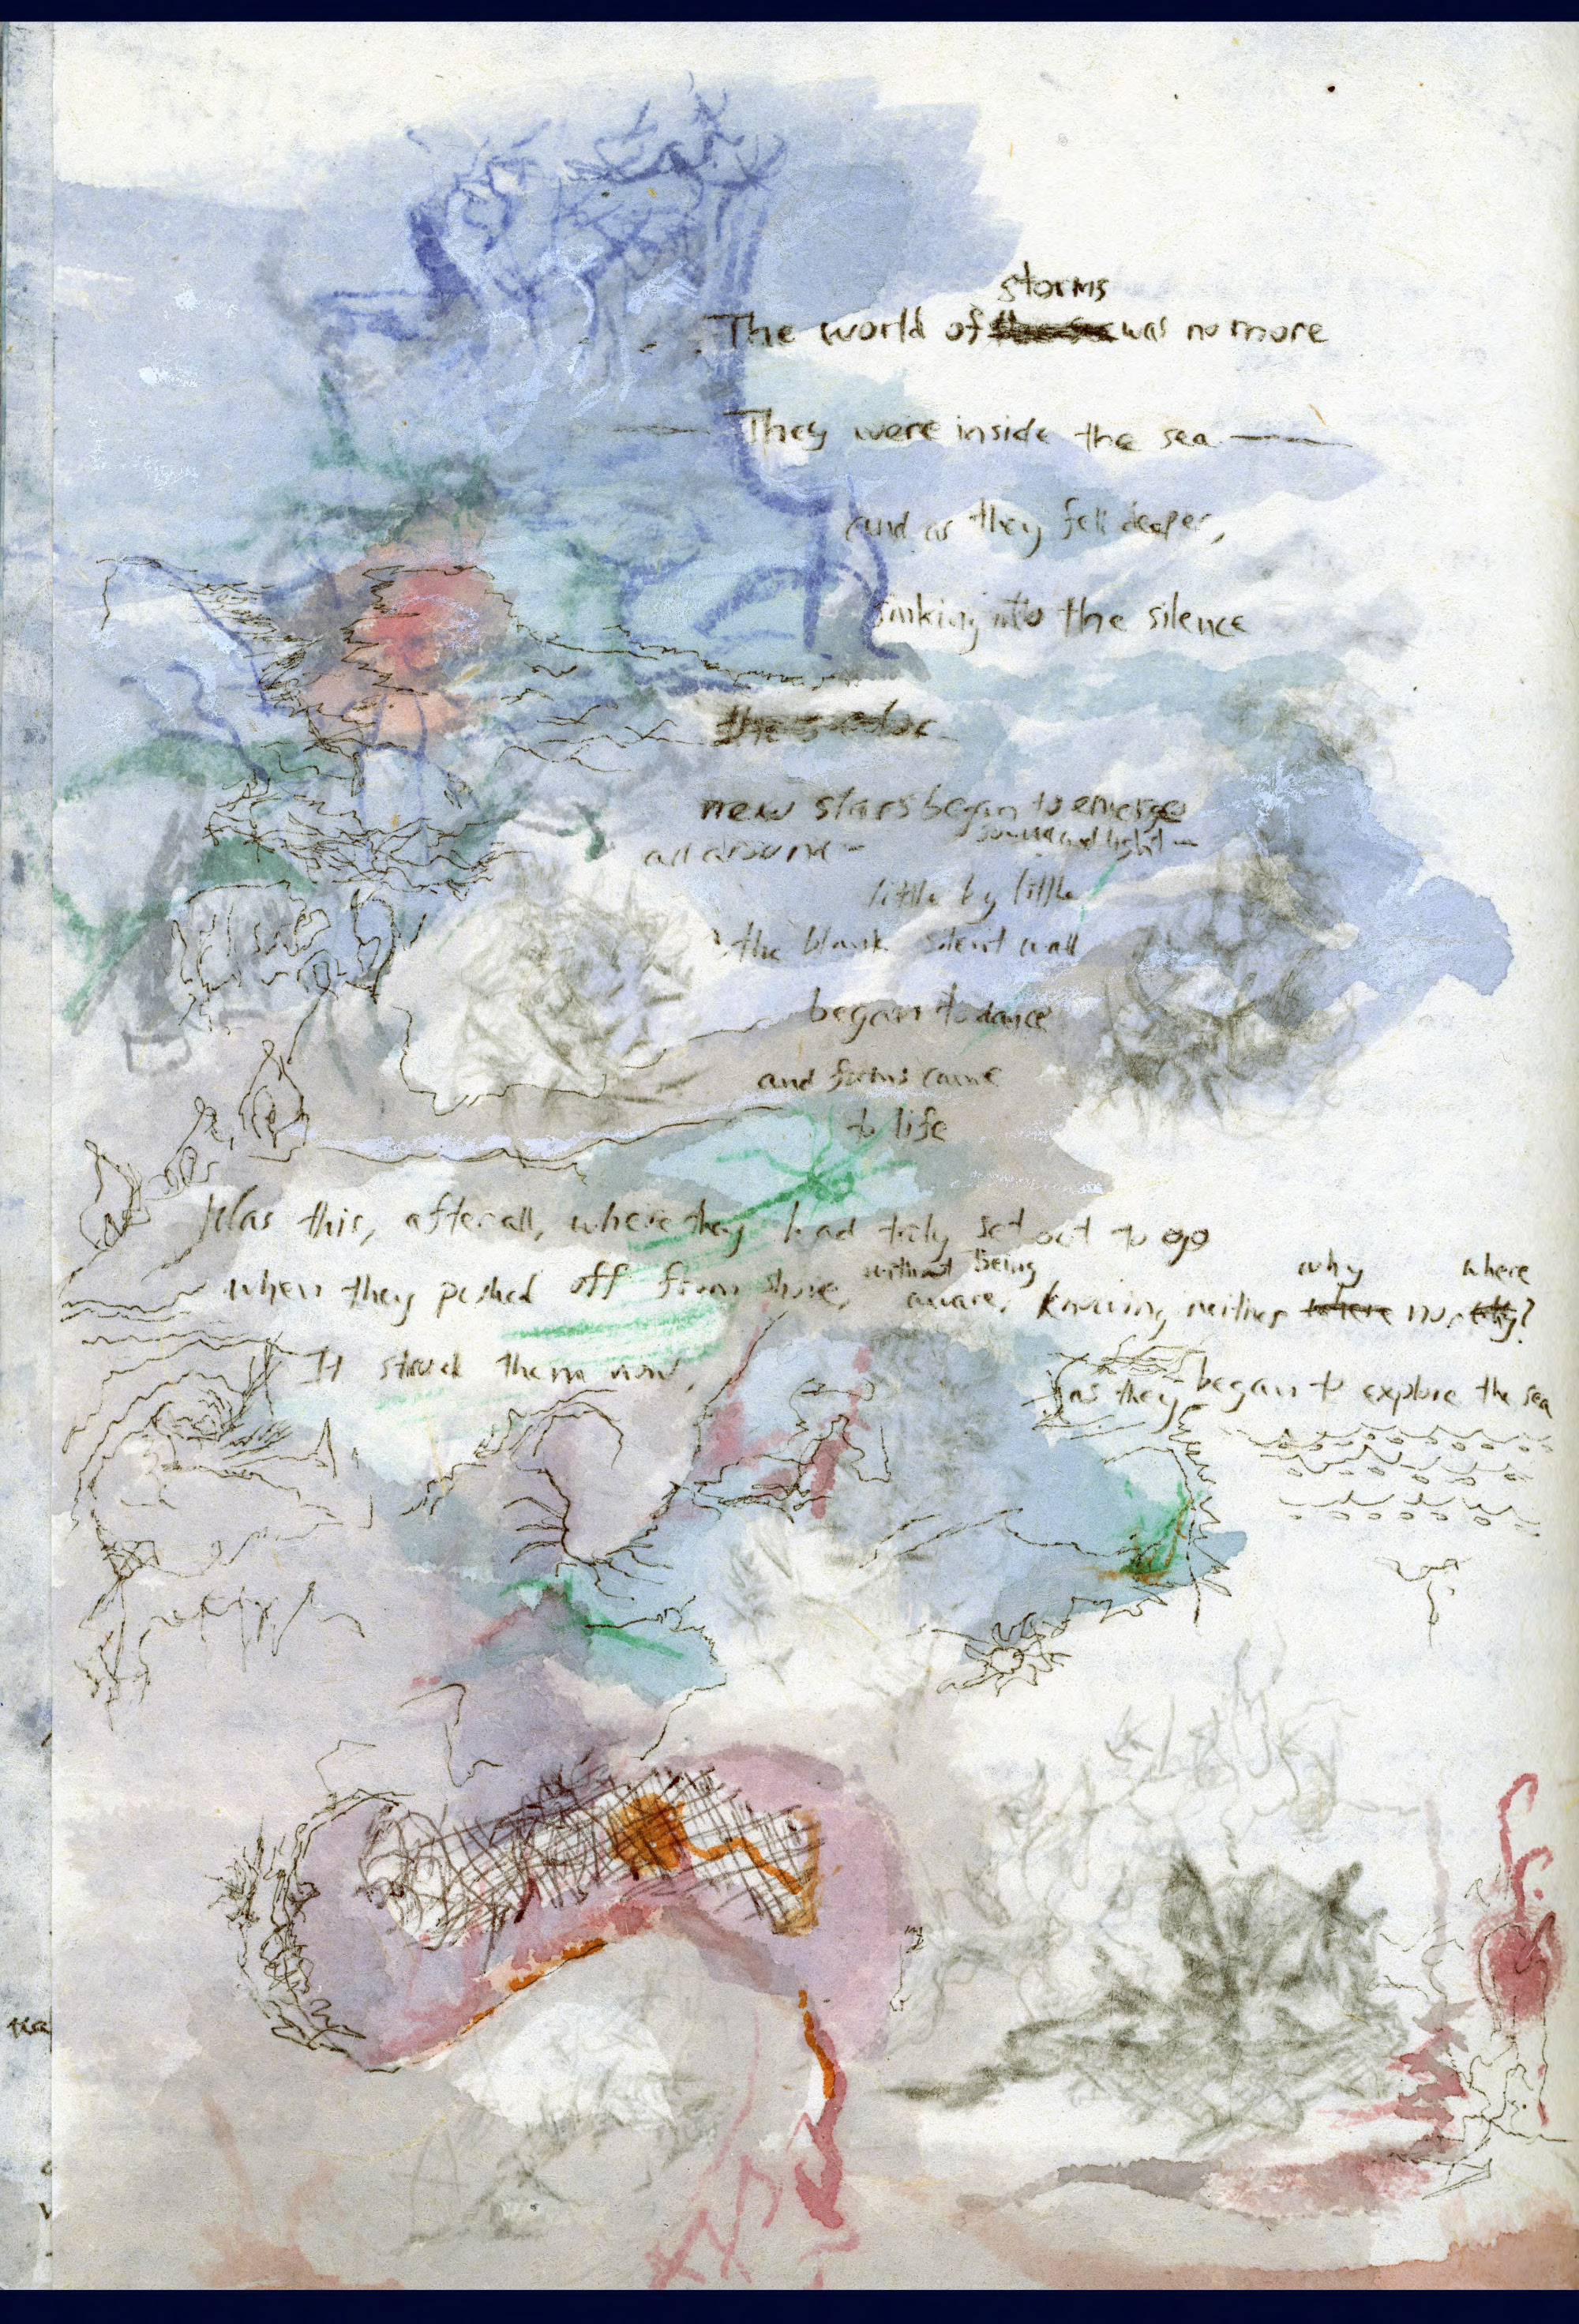 storms
The world of was no more
They were inside the sea —
and as they fell deeper,
sinking into the silence
new stars began to emerge
all around — sound and light —
little by little
the blank silent wall
began to dance
and forms came
to life
Was this, after all, where they had truly set out to go
without being why where
when they pushed off from shore, aware, knowing neither where nor why?
It struck them now,
as they began to explore the sea